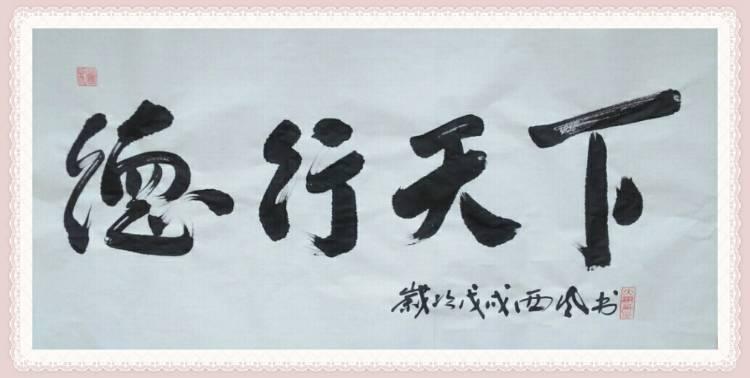 德行天下
歲於戊戌西风书